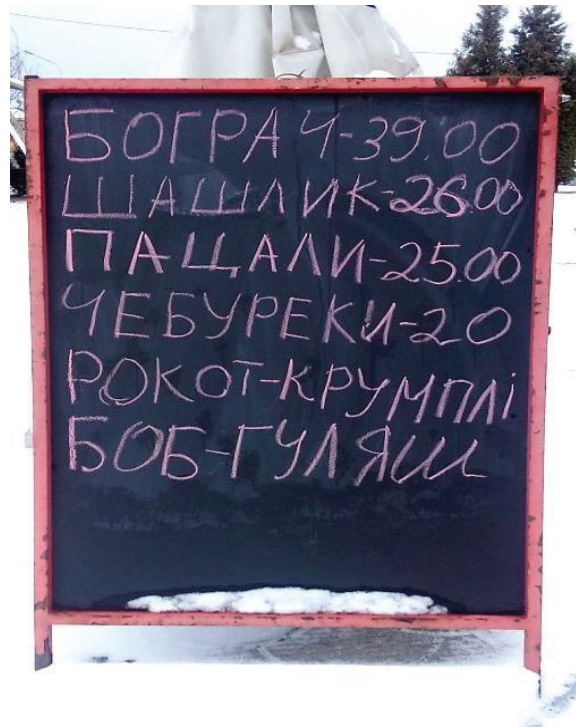 БОГРАЧ-39.00
ШАШЛИК-26.00
ПАЦАЛИ-25.00
ЧЕБУРЕКИ-20
РОКОТ-КРУМПЛІ
БОБ-ГУЛЯШ